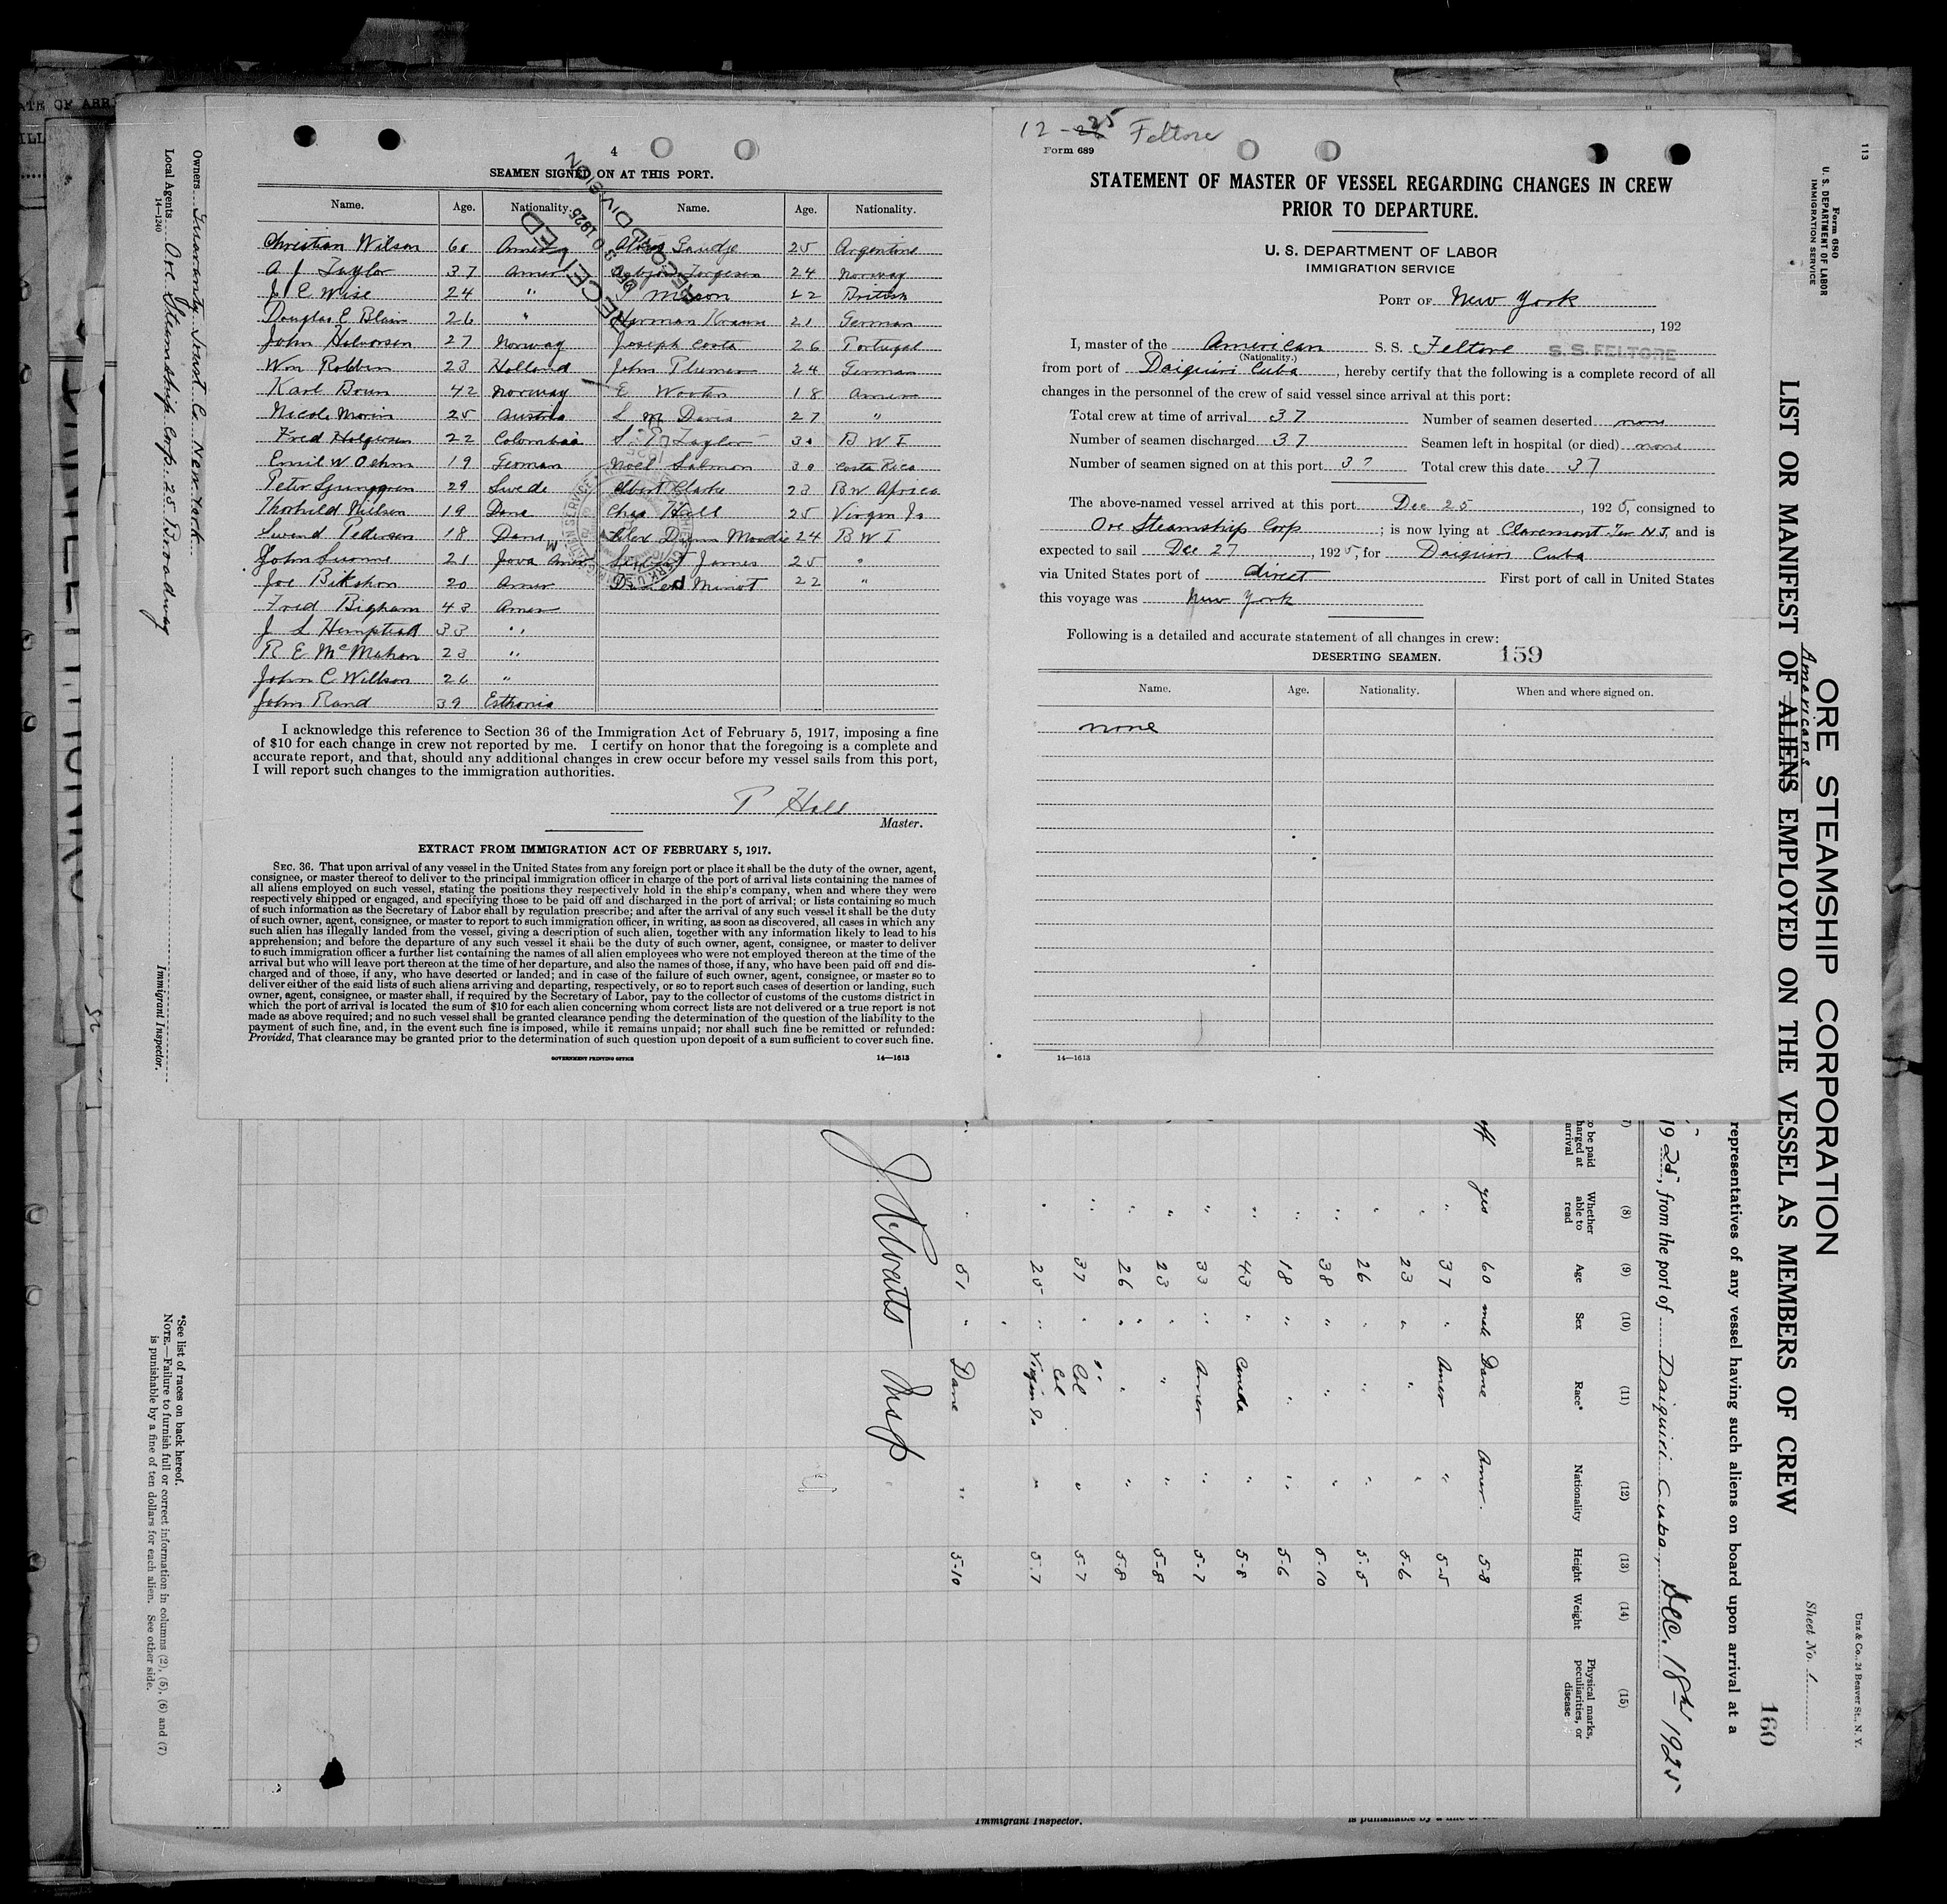 4
SEAMEN SIGNED ON AT THIS PORT.
Name. Age. Nationality. Name. Age. Nationality.
Christian Wilson 60 Amer 25 Argentine
A J Taylor 37 Amer 24 Norway
J C Wise 24 " 22 British
Douglas E Blair 26 " Herman Kraun 21 German
John Halvorsen 27 Norway Joseph Costa 26 Portugal
Wm Robbin 23 Holland John Plumen 24 German
Karl Boun 42 Norway E Wooten 18 Amer
Nicole Morin 25 Austria L M Davis 27 "
Fred Holgersen 22 Colombia S. E. Taylor 30 B W I
Emil W Oehm 19 German Noel Salmon 30 Costa Rica
Peter 29 Swede Albert Clarke 23 B W Africa
Thorkild Nillsen 19 Dane Chas Hall 25 Virgin Is
Svend Pedersen 18 Dane Alex 24 B W I
John 21 James 25 "
Joe 20 Amer Minot 22 "
Fred Bigham 43 Amer
J L Hempstead 33 "
R E McMahon 23 "
John C Willson 26 "
John Rand 39 Esthonia
RECEIVED
DEC 30 1925
RECORD DIVISION
I acknowledge this reference to Section 36 of the Immigration Act of February 5, 1917, imposing a fine
of $10 for each change in crew not reported by me. I certify on honor that the foregoing is a complete and
accurate report, and that, should any additional changes in crew occur before my vessel sails from this port,
I will report such changes to the immigration authorities.
P Hall
Master.
EXTRACT FROM IMMIGRATION ACT OF FEBRUARY 5, 1917.
SEC. 36. That upon arrival of any vessel in the United States from any foreign port or place it shall be the duty of the owner, agent,
consignee, or master thereof to deliver to the principal immigration officer in charge of the port of arrival lists containing the names of
all aliens employed on such vessel, stating the positions they respectively hold in the ship's company, when and where they were
respectively shipped or engaged, and specifying those to be paid off and discharged in the port of arrival; or lists containing so much
of such information as the Secretary of Labor shall by regulation prescribe; and after the arrival of any such vessel it shall be the duty
of such owner, agent, consignee, or master to report to such immigration officer, in writing, as soon as discovered, all cases in which any
such alien has illegally landed from the vessel, giving a description of such alien, together with any information likely to lead to his
apprehension; and before the departure of any such vessel it shall be the duty of such owner, agent, consignee, or master to deliver
to such immigration officer a further list containing the names of all alien employees who were not employed thereon at the time of the
arrival but who will leave port thereon at the time of her departure, and also the names of those, if any, who have been paid off and dis-
charged and of those, if any, who have deserted or landed; and in case of the failure of such owner, agent, consignee, or master so to
deliver either of the said lists of such aliens arriving and departing, respectively, or so to report such cases of desertion or landing, such
owner, agent, consignee, or master shall, if required by the Secretary of Labor, pay to the collector of customs of the customs district in
which the port of arrival is located the sum of $10 for each alien concerning whom correct lists are not delivered or a true report is not
made as above required; and no such vessel shall be granted clearance pending the determination of the question of the liability to the
payment of such fine, and, in the event such fine is imposed, while it remains unpaid; nor shall such fine be remitted or refunded:
Provided, That clearance may be granted prior to the determination of such question upon deposit of a sum sufficient to cover such fine.
GOVERNMENT PRINTING OFFICE 14—1613
12-25 Feltore
Form 689
STATEMENT OF MASTER OF VESSEL REGARDING CHANGES IN CREW
PRIOR TO DEPARTURE.
U. S. DEPARTMENT OF LABOR
IMMIGRATION SERVICE
PORT OF New York
, 192
I, master of the American S. S. Feltore S. S. FELTORE
(Nationality.)
from port of Daiquiri Cuba, hereby certify that the following is a complete record of all
changes in the personnel of the crew of said vessel since arrival at this port:
Total crew at time of arrival 37 Number of seamen deserted none
Number of seamen discharged 37 Seamen left in hospital (or died) none
Number of seamen signed on at this port 37 Total crew this date 37
The above-named vessel arrived at this port Dec 25, 1925, consigned to
Ore Steamship Corp; is now lying at Claremont Ter N J, and is
expected to sail Dec 27, 1925, for Daiquiri Cuba
via United States port of direct First port of call in United States
this voyage was New York
Following is a detailed and accurate statement of all changes in crew:
DESERTING SEAMEN. 159
Name. Age. Nationality. When and where signed on.
none
14—1613
113
Form 680
U. S. DEPARTMENT OF LABOR
IMMIGRATION SERVICE
Unz & Co., 24 Beaver St., N. Y.
ORE STEAMSHIP CORPORATION
Sheet No. 1
Americans
LIST OR MANIFEST OF ALIENS EMPLOYED ON THE VESSEL AS MEMBERS OF CREW
160
representatives of any vessel having such aliens on board upon arrival at a
1925, from the port of Daiquiri Cuba, Dec. 18th 1925
(8) (9) (10) (11) (12) (13) (14) (15)
Whether able to read Age Sex Race* Nationality Height Weight Physical marks, peculiarities, or disease
yes 60 male Dane Amer. 5-8
" 37 " Amer " 5-5
" 23 " " " 5-6
" 26 " " " 5-5
" 38 " " " 5-10
" 18 " " " 5-6
" 43 " Canada " 5-8
" 33 " Amer " 5-7
" 23 " " " 5-8
" 26 " " " 5-8
" 37 " Col " 5-7
Col
" 25 " Virgin Is " 5-7
" 51 " Dane " 5-10
Insp
Owners Guaranty Trust Co New York
Local Agents Ore Steamship Corp. 25 Broadway
14—1240
Immigrant Inspector.
*See list of races on back hereof.
NOTE.—Failure to furnish full or correct information in columns (2), (5), (6) and (7)
is punishable by a fine of ten dollars for each alien. See other side.
Immigrant Inspector.